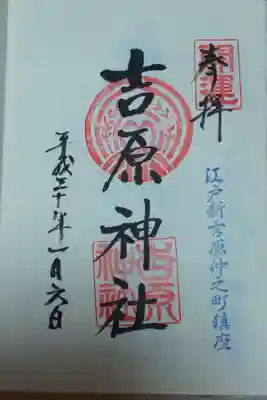 開運
奉拝
江戸新吉原仲之町鎮座
吉原神社
吉原神社
平成三十年一月六日